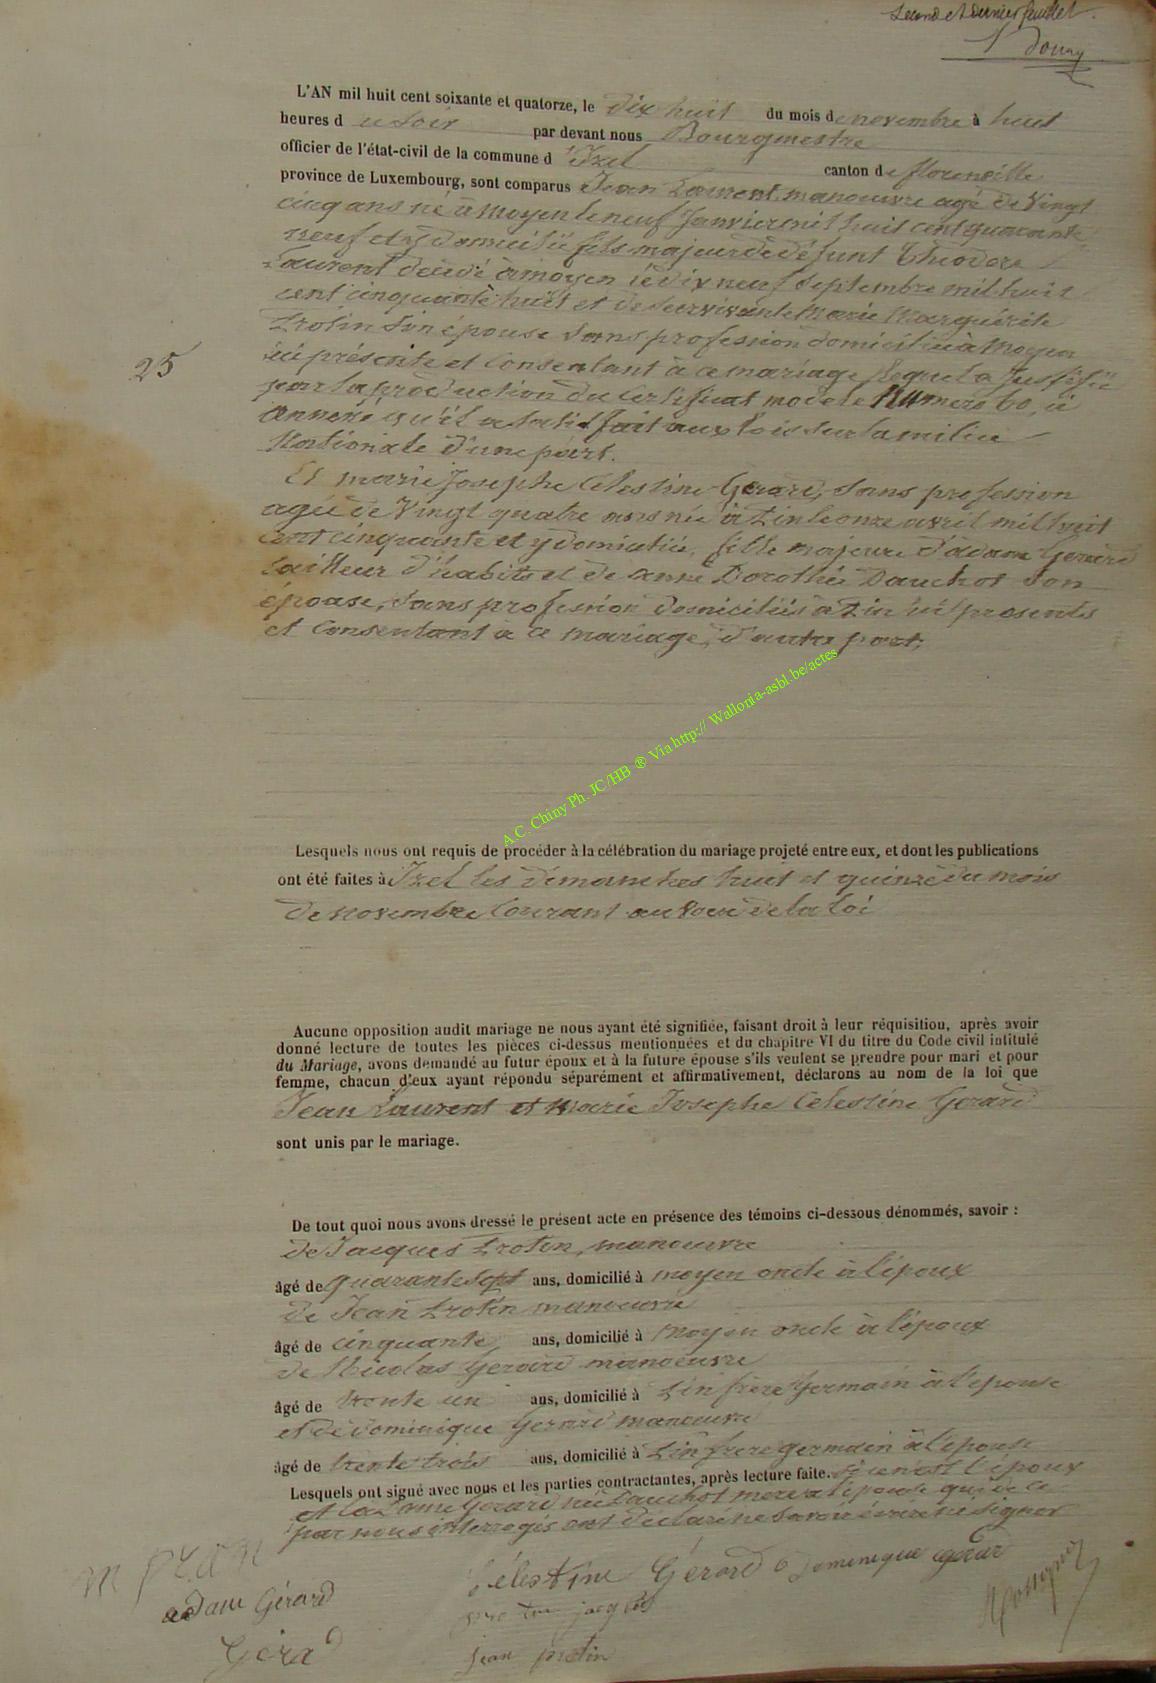 second et dernier feuillet.
L'AN mil huit cent soixante et quatorze, le dix huit du mois de novembre à huit
heures du soir par devant nous Bourgmestre
officier de l'état-civil de la commune d'Izel canton de florenville
province de Luxembourg, sont comparus Jean Laurent, manoeuvre agé de Vingt
cinq ans né à moyen le neuf Janvier mil huit cent quarante
neuf et y domicilié fils majeur de défunt Théodore
Laurent décédé à moyen le dix neuf Septembre mil huit
cent cinquante huit et de survivante Marie Marguérite
Protin son épouse sans profession domiciliée à Moyen
ici présente et Consentant à ce mariage lequel a Justifié
par la production du Certificat modele Numero 60, ci
annexé qu'il a satisfait aux lois sur la milice
Nationale d'une part.
Et marie Josephe Célestine Gerard, sans profession
agée de Vingt quatre ans née à Pin le onze avril mil huit
cent cinquante et y domiciliée, fille majeure d'adam Gerard
tailleur d'habits et de Anne Dorothée Dauchot son
épouse, sans profession domiciliés à Pin ici presents
et Consentant à ce mariage, d'autre part;
25
A.C. Chiny Ph. JC/HB ® Via http:// Wallonia-asbl.be/actes
Lesquels nous ont requis de procéder à la célébration du mariage projeté entre eux, et dont les publications
ont été faites à Izel les dimanches huit et quinze du mois
de novembre Courant au voeu de la loi
Aucune opposition audit mariage ne nous ayant été signifiée, faisant droit à leur réquisitiou, après avoir
donné lecture de toutes les pièces ci-dessus mentionnées et du chapitre VI du titre du Code civil intitulé
du Mariage, avons demandé au futur époux et à la future épouse s'ils veulent se prendre pour mari et pour
femme, chacun d'eux ayant répondu séparément et affirmativement, déclarons au nom de la loi que
Jean Laurent et Marie Josephe Celestine Gerard
sont unis par le mariage.
De tout quoi nous avons dressé le présent acte en présence des témoins ci-dessous dénommés, savoir :
de Jacques Protin, manoeuvre
âgé de quarante sept ans, domicilié à moyen oncle à l'époux
de Jean Protin manoeuvre
âgé de cinquante ans, domicilié à Moyen oncle à l'époux
de Nicolas Gerard manoeuvre
âgé de trente un ans, domicilié à Pin frère Germain à l'épouse
et de dominique Gerard manoeuvre
âgé de trente trois ans, domicilié à Pin frere germain à l'épouse
Lesquels ont signé avec nous et les parties contractantes, après lecture faite. Si ce n'est l'époux
et la dame Gerard née Dauchot mere à l'épouse qui de ce
par nous interrogés ont déclaré ne savoir écrire ni signer
Célestine Gérard Dominique gerard
adam Gérard
jacques
Gérad
jean protin